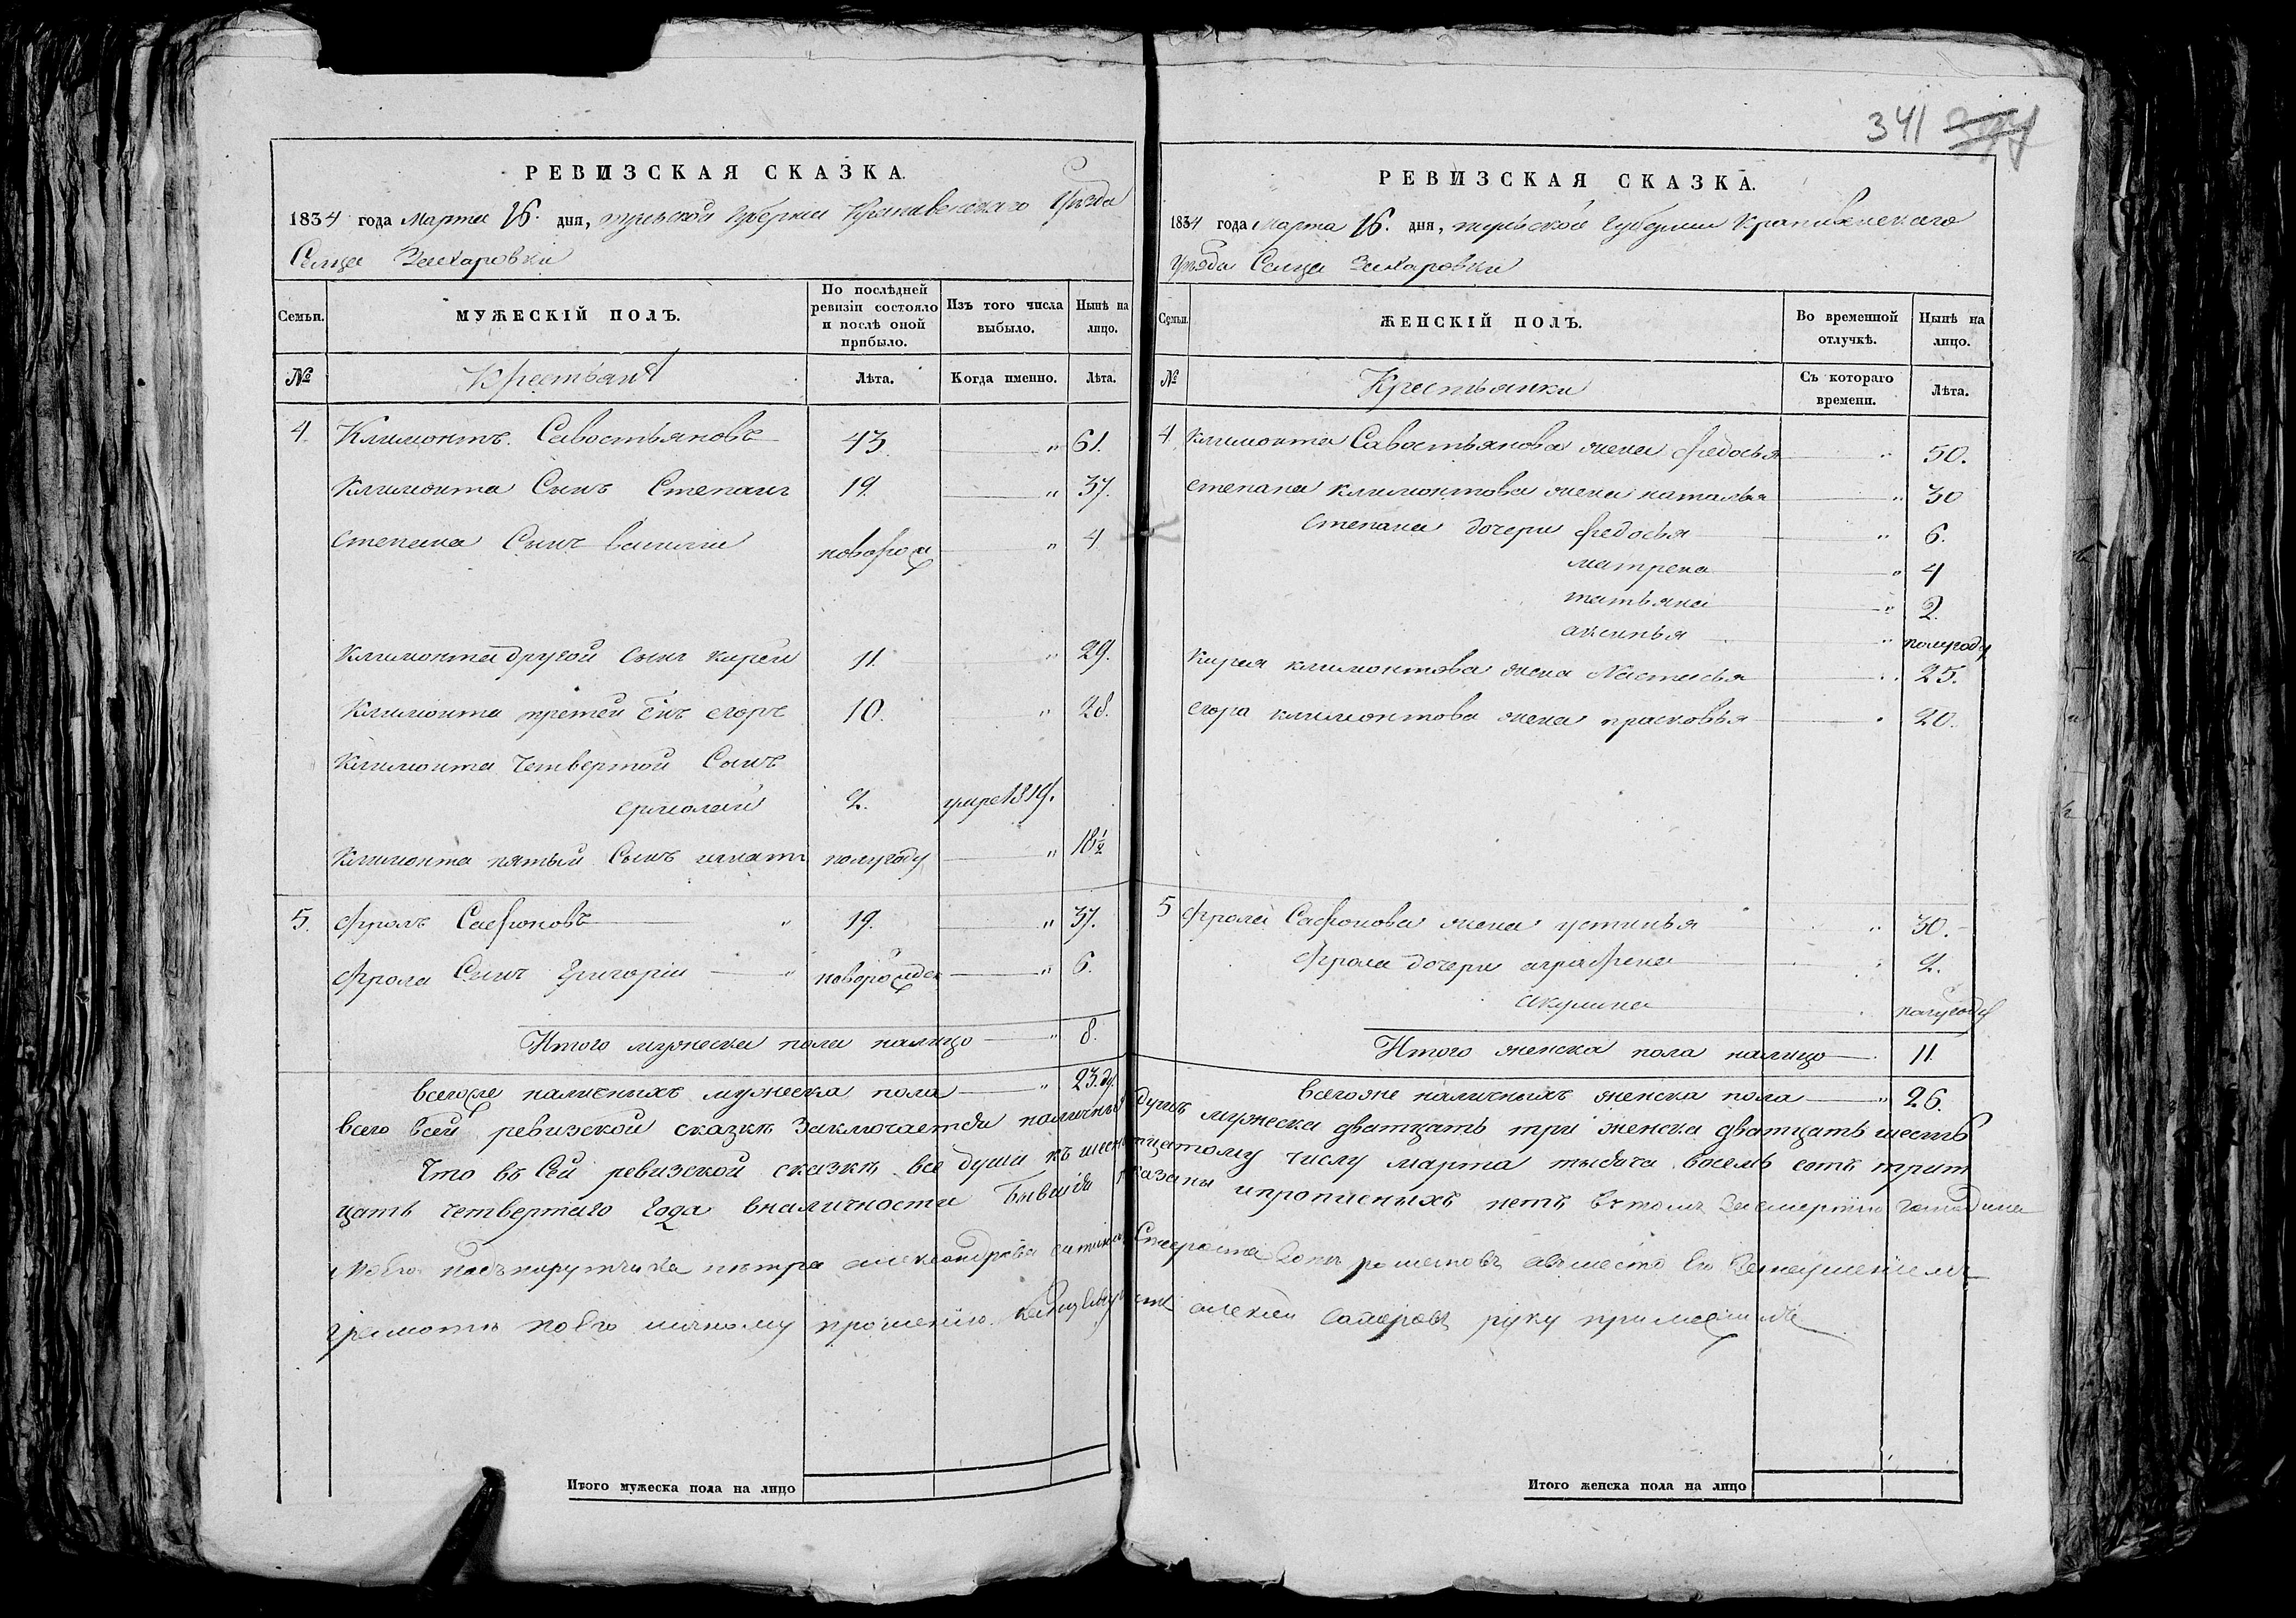 341
РЕВИЗСКАЯ СКАЗКА.
1834 года Марта 16. дня, тульской Губернии Крапивенского Уезда
Селца Захаровки
Семьи. МУЖЕСКІЙ ПОЛЪ. По послѣдней ревизіи состояло и послѣ оной прибыло. Изъ того числа выбыло. Нынѣ на лицо.
№ Крестьяня Лѣта. Когда именно. Лѣта.
4. Климонтъ Савостьяновъ 43. " 61.
Климонта Сынъ Степанъ 19. " 37.
Степана Сынъ василий новорож " 4
Климонта другой сынъ кирей 11. " 29.
Климонта третей Снъ егоръ 10. " 28.
Климонта Четвертой Сынъ
ермолай 2. умре 1819.
Климонта пятый Сынъ игнатъ полугоду " 18½
5. Фролъ Сафроновъ " 19. " 37.
Фрола Сынъ Григорій " новорожде " 6.
Итого мужеска пола налицо " 8.
всегоже наличныхъ мужеска пола " 23. ду.
РЕВИЗСКАЯ СКАЗКА.
1834 года Марта 16. дня, тульской Губернии Крапивенскаго
Уезда Селца Захаровки
Семьи. ЖЕНСКІЙ ПОЛЪ. Во временной отлучкѣ. Нынѣ на лицо.
№ Крестьянки Съ котораго времени. Лѣта.
4 Климонта Савостьянова жена федосья " 50.
степана климонтова жена наталья " 30
Степана дочери федосья " 6.
матрена " 4
татьяна " 2.
аксинья " полугоду
Кирея климонтова жена Настасья " 25.
егора климонтова жена прасковья " 20.
5 Фрола Сафронова жена устинья " 30.
Фрола дочери аграфена " 2.
акулина полугоду
Итого женска пола налицо 11
всегоже наличныхъ женска пола " 26.
всего всей ревизской сказкѣ Заключается наличныхъ душъ мужеска дватцать три женска дватцать шесть
Что въ Сей ревизской сказкѣ все души къ шестнатцатому числу марта тысяча восемь сотъ трит
цать четвертаго Года вналичности Бывшия показаны ипрописныхъ нетъ втомъ
моего петра александрова Староста авместо Его Занеумениемъ
грамоте поего личному прошению алексей руку приложилъ
Итого мужеска пола на лицо
Итого женска пола на лицо